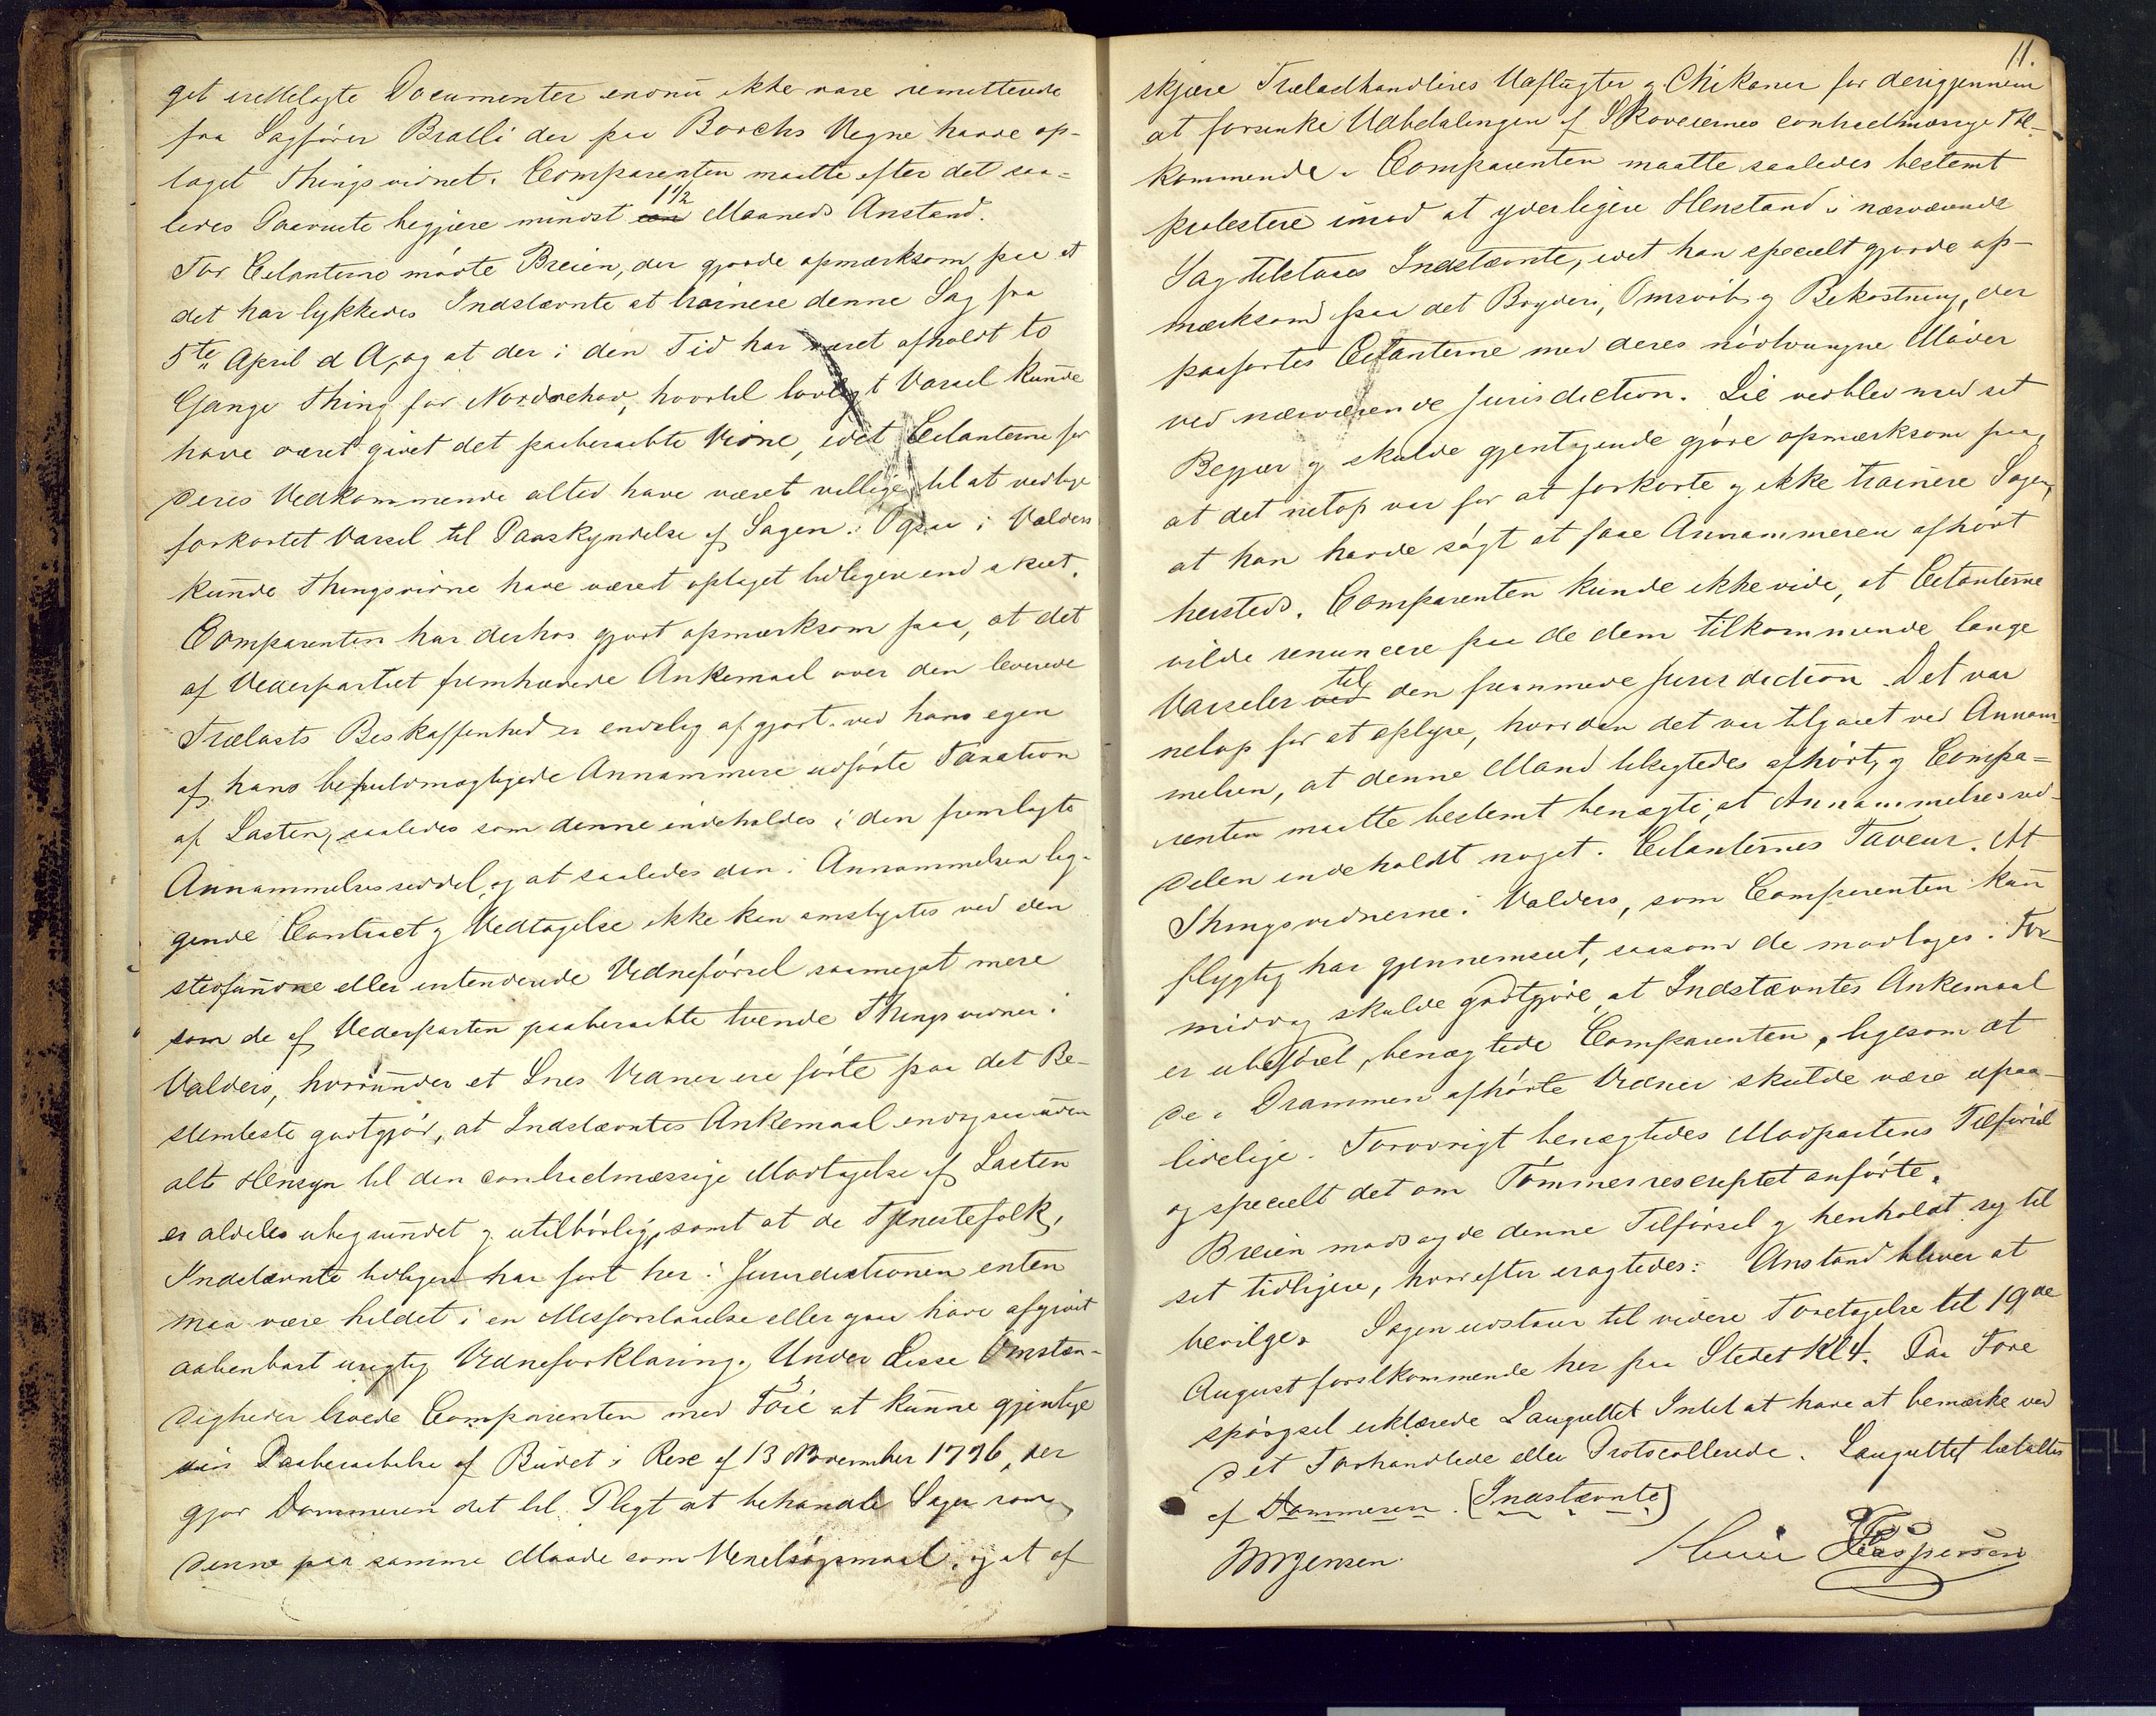 get irettelagte Documenter endnu ikke vare remitterede
fra Sagfører Bralli der paa Borchs Vegne havde op-
taget Thingsvidnet. Comparenten maatte efter det saa-
ledes Passerte begjære mindst 1 1/2 Maaneds Anstand.
For Citanterne mødte Breien, der gjorde opmærksom paa at
det har lykkedes Indstævnte at trainere denne Sag fra
5te April d A, og at der i den Tid har været afholdt to
Gange Thing for Norderhov, hvortil lovligt Varsel kunde
have været givet det paaberaabte Vidne, idet Citanterne for
deres Vedkommende altid have været villige til at vedtage
forkortet Varsel til Paaskyndelse af Sagen. Ogsaa i Valders
kunde Thingsvidne have været optaget tidligere end skeet.
Comparenten har derhos gjort opmærksom paa, at det
af Vederpartiet fremhævede Ankemaal over den leverede
Trælasts Beskaffenhed er endelig afgjort ved hans egen
af hans befuldmægtigede Annammere udførte Taxation
af Lasten, saaledes som denne indeholdes i den fremlagte
Annammelsesseddel, og at saaledes den i Annammelsen lig-
gende Contract og Vedtagelse ikke kan omstyrtes ved den
stedfundne eller intenderede Vidneførsel saameget mere
som de af Vederparten paaberaabte tvende Thingsvidner i
Valders, hvorunder et Snes Vidner ere førte paa det Be-
stemteste godtgjør, at Indstævntes Ankemaal endog uden
alt Hensyn til den contractmæssige Modtagelse af Lasten
er aldeles ubegrundet og utilbørlig, samt at de Tjenestefolk,
Indstævnte tidligere har ført her i Jurisdictionen enten
maa være hildet i en Misforstaaelse eller gaa have afgivit
aabenbart urigtig Vidneforklaring. Under disse Omstæn-
digheder troede Comparenten med Føie at kunne gjentage
sin Paaberaabelse af Budet i Resc af 13 November 1796, der
gjør Dommeren det til Pligt at behandle Sager som
denne paa samme Maade som Vexelsøgsmaal, og at af
11.
skjære Trælasthandleres Udflugter og Chikaner for derigjennem
at forsinke Udbetalingen af Skoveiernes contractmæssige Til-
kommende. Comparenten maatte saaledes bestemt
protestere imod at yderligere Henstand i nærværende
Sag tilstaaes Indstævnte, idet han specielt gjorde op-
mærksom paa det Bryderi, Omsvøb og Bekostning, der
paaførtes Citanterne med deres nødtvungne Møder
ved nærværende Jurisdiction. Lie vedblev med sit
Begjær og skulde gjentagende gjøre opmærksom paa,
at det netop var for at forkorte og ikke trainere Sagen,
at han havde søgt at faae Annammeren afhørt
hersteds. Comparenten kunde ikke vide, at Citanterne
vilde renuncere paa de dem tilkommende lange
Varseler til den fremmede Jurisdiction. Det var
netop for at oplyse, hvordan det var tilgaaet ved Annam-
melsen, at denne Mand tilsigtedes afhørt, og Compa-
renten maatte bestemt benægte, at Annammelsessed-
delen indeholdt noget i Citanternes Faveur. At
Thingsvidnerne i Valders, som Comparenten kun
flygtig har gjennemseet, saasom de modtoges i For-
middag skulde godtgjøre at Indstævntes Ankemaal
er ubeføiet, benægtede Comparenten, ligesom at
de i Drammen afhørte Vidner skulde være upaa-
lidelige. Forøvrigt benægtedes Modpartens Tilførsel
og specielt det om Tømmerrescriptet anførte.
Breien modsagde denne Tilførsel og henholdt sig til
sit tidligere, hvorefter eragtedes: Anstand bliver at
bevilge. Sagen udstaaer til videre Foretagelse til 19de
August førstkommende her paa Stedet Kl 4. Paa Fore
spørgsel erklærede Laugrettet Intet at have at bemærke ved
det Forhandlede eller Protocollerede. Laugrettet betaltes
af Dommeren. (Indstævnte)
Jørgensen. Kaspersen